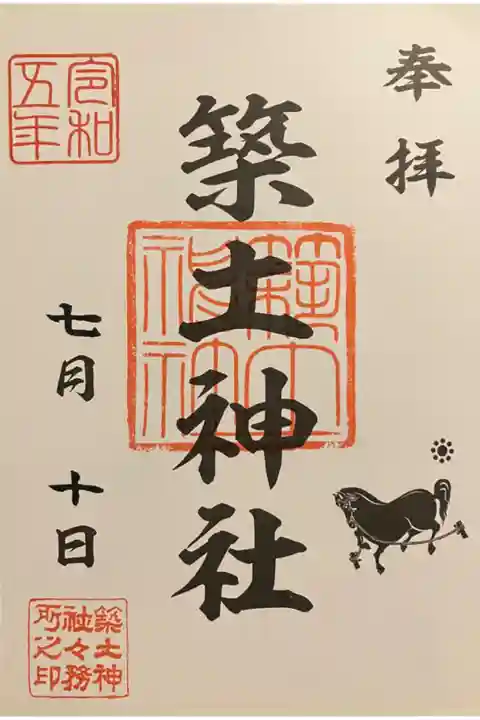 奉拝
築土神社
築土神社
令和五年
七月十日
築土神社々務所之印